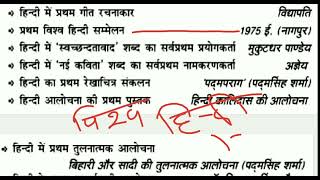 हिन्दी में प्रथम गीत रचनाकार विद्यापति
प्रथम विश्व हिन्दी सम्मेलन 1975 ई. (नागपुर)
हिन्दी में 'स्वच्छन्दतावाद' शब्द का सर्वप्रथम प्रयोगकर्ता मुकुटधर पाण्डेय
हिन्दी में 'नई कविता' शब्द का सर्वप्रथम नामकरणकर्ता अज्ञेय
हिन्दी का प्रथम रेखाचित्र संकलन 'पद्मपराग' (पद्मसिंह शर्मा)
हिन्दी आलोचना की प्रथम पुस्तक हिन्दी कालिदास की आलोचना
विश्व हिन्दी
हिन्दी में प्रथम तुलनात्मक आलोचना
बिहारी और सादी की तुलनात्मक आलोचना (पद्मसिंह शर्मा)